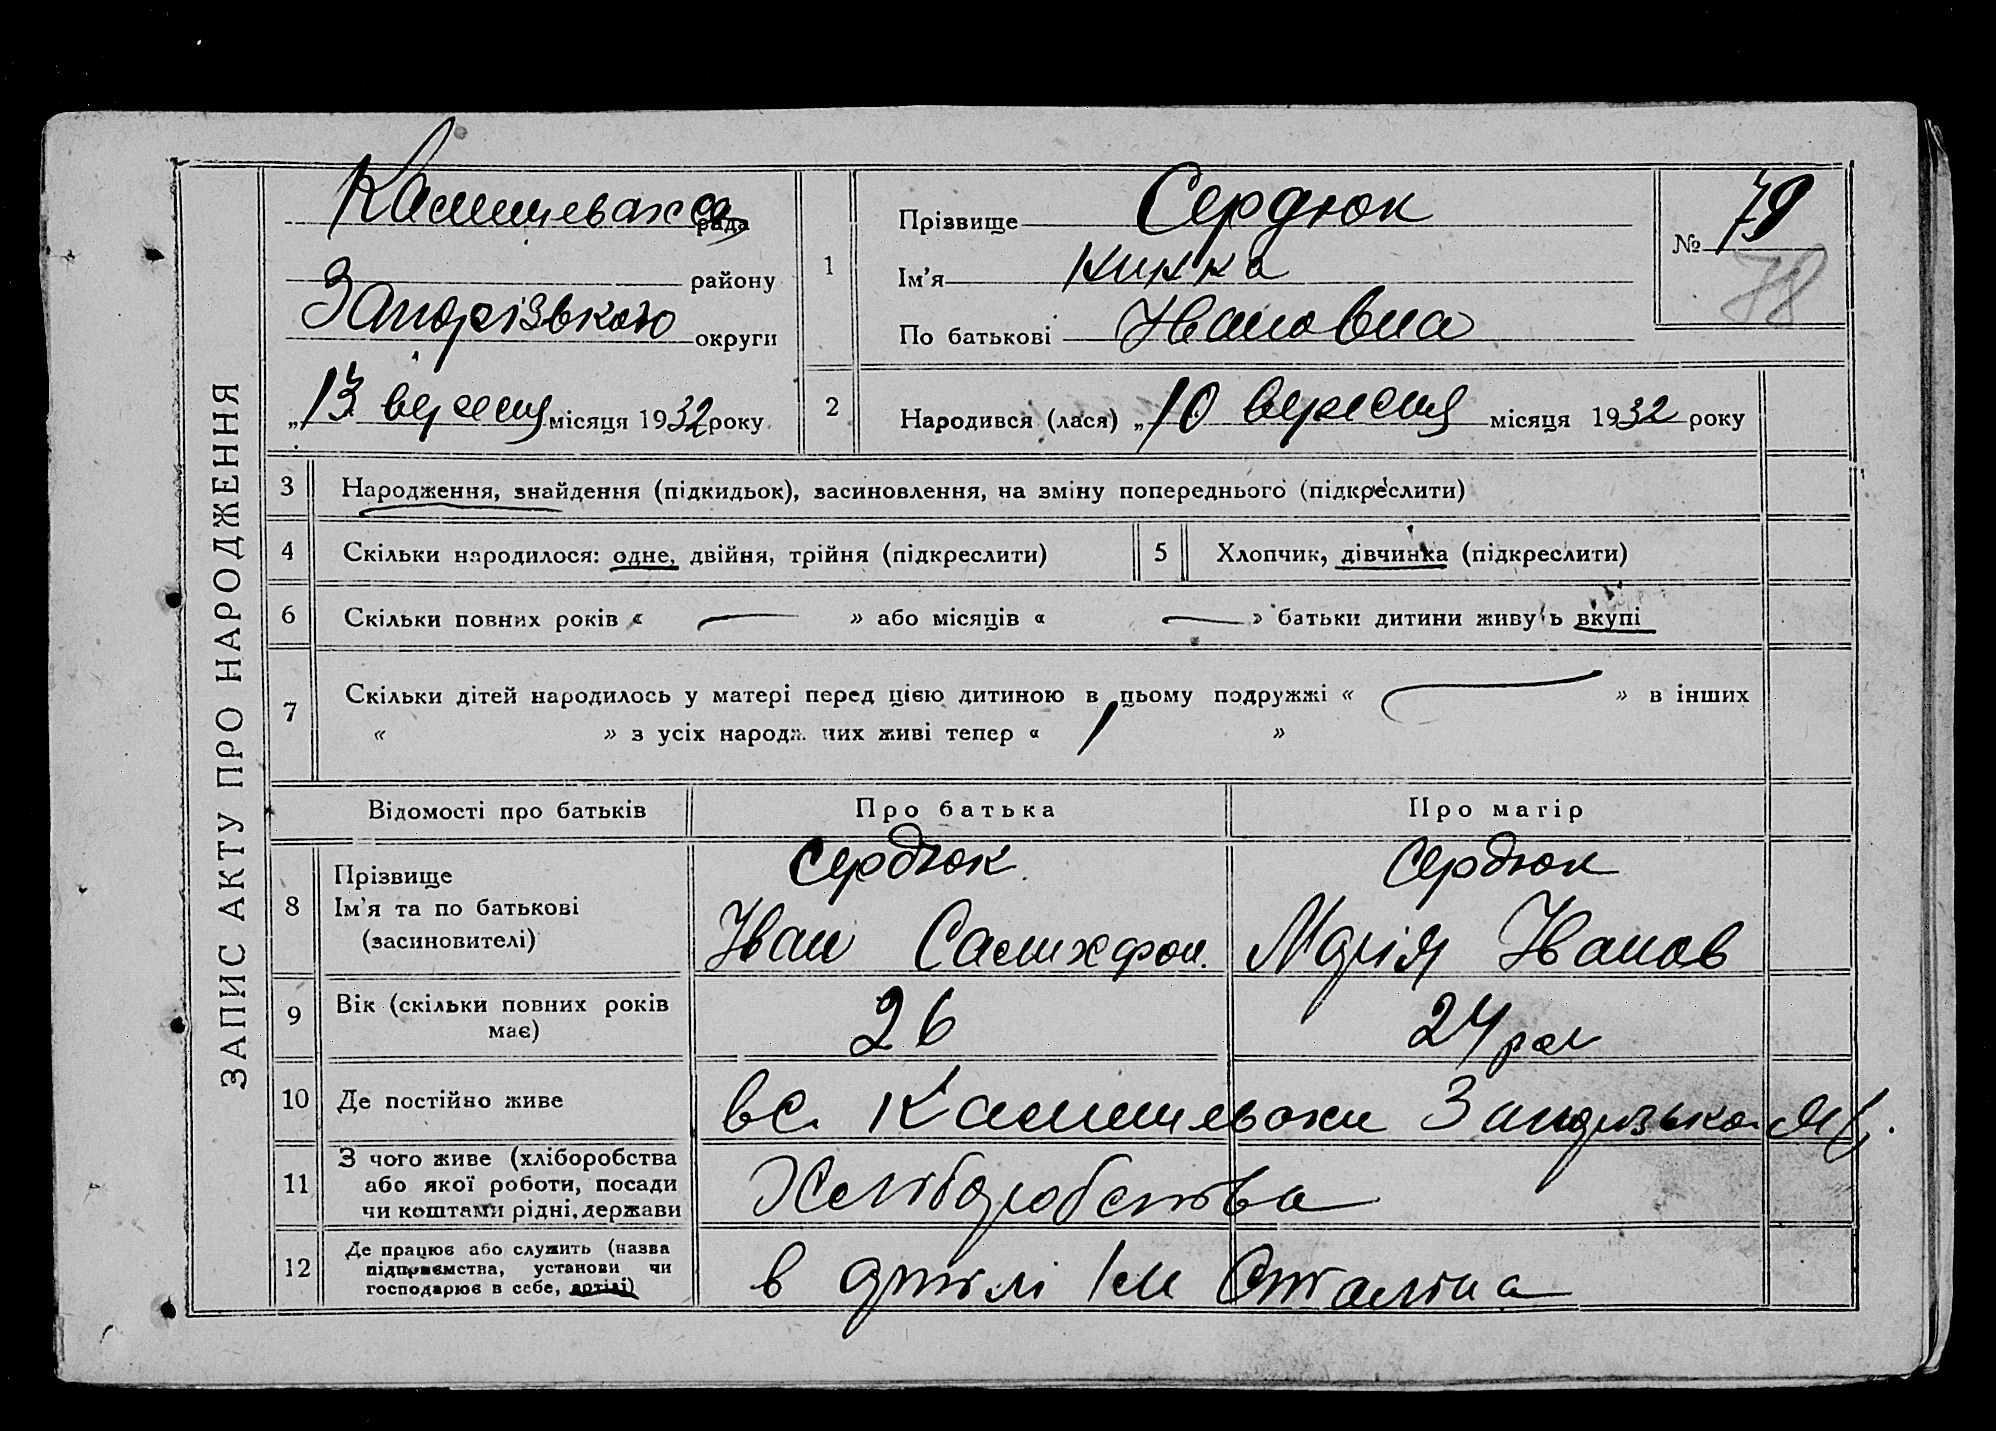 ЗАПИС АКТУ ПРО НАРОДЖЕННЯ
рада
району
Запорізького округи
„13 вересня місяця 1932 року
1
Прізвище Сердюк
Ім'я
По батькові Івановна
№ 79
78
2
Народився (лася) „10 вересня місяця 1932 року
3 Народження, знайдення (підкидьок), засиновлення, на зміну попереднього (підкреслити)
4 Скільки народилося: одне, двійня, трійня (підкреслити)
5 Хлопчик, дівчинка (підкреслити)
6 Скільки повних років « — » або місяців « — » батьки дитини живуть вкупі
7 Скільки дітей народилось у матері перед цією дитиною в цьому подружжі « — » в інших
« » з усіх народж. них живі тепер « »
Відомості про батьків
Про батька
Про матір
8 Прізвище
Ім'я та по батькові
(засиновителі)
Сердюк
Іван
Сердюк
Марія Іванов
9 Вік (скільки повних років
має)
26
24
10 Де постійно живе
в с. Камишеваха
11 З чого живе (хліборобства
або якої роботи, посади
чи коштами рідні, держави
Хліборобства
12 Де працює або служить (назва
підприємства, установи чи
господарює в себе, артілі)
в артілі Ім Сталіна